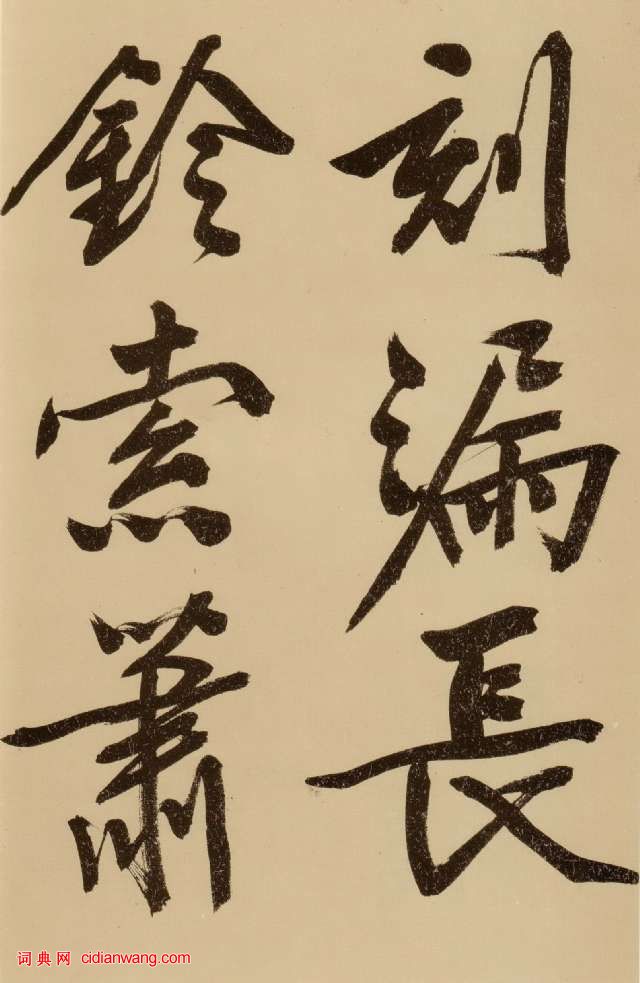 刻漏長
鈴索蕭
词典网 cidianwang.com